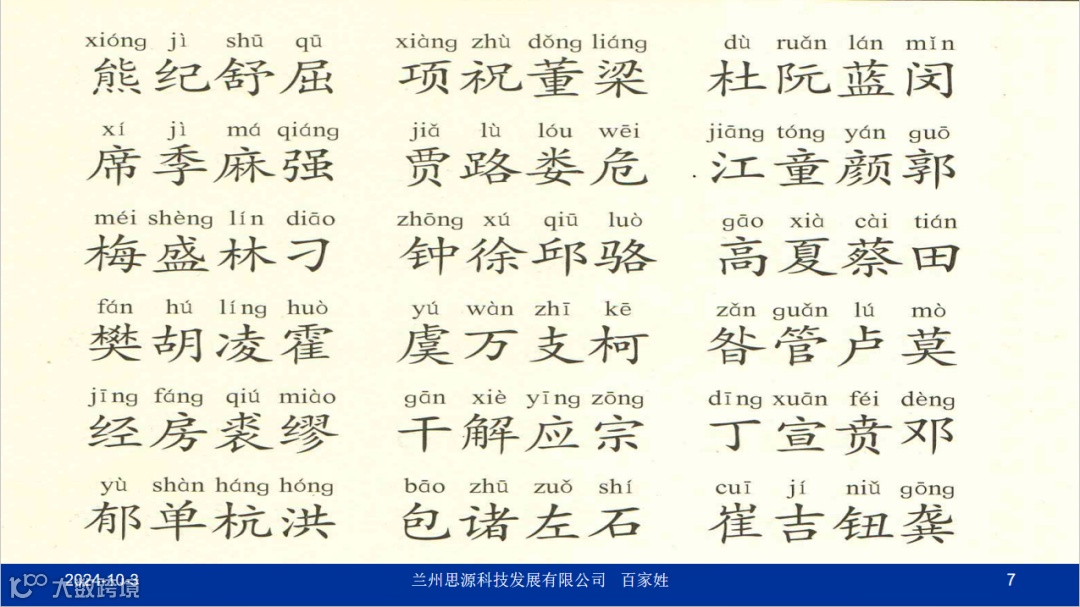 xióng jì shū qū xiàng zhù dǒng liáng dù ruǎn lán mǐn
熊纪舒屈 项祝董梁 杜阮蓝闵
xí jì má qiáng jiǎ lù lóu wēi jiāng tóng yán guō
席季麻强 贾路娄危 江童颜郭
méi shèng lín diāo zhōng xú qiū luò gāo xià cài tián
梅盛林刁 钟徐邱骆 高夏蔡田
fán hú líng huò yú wàn zhī kē zǎn guǎn lú mò
樊胡凌霍 虞万支柯 昝管卢莫
jīng fáng qiú miào gān xiè yīng zōng dīng xuān féi dèng
经房裘缪 干解应宗 丁宣贲邓
yù shàn háng hóng bāo zhū zuǒ shí cuī jí niǔ gōng
郁单杭洪 包诸左石 崔吉钮龚
2024-10-3 兰州思源科技发展有限公司 百家姓 7
大数跨境